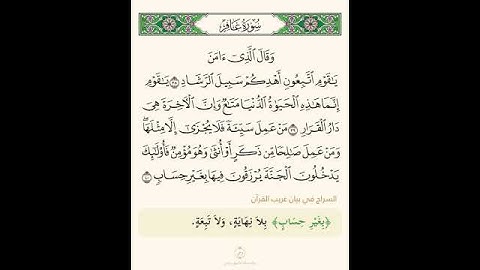 سُورَةُ غَافِرٍ
وَقَالَ ٱلَّذِىٓ ءَامَنَ
يَٰقَوْمِ ٱتَّبِعُونِ أَهْدِكُمْ سَبِيلَ ٱلرَّشَادِ ٣٨ يَٰقَوْمِ
إِنَّمَا هَٰذِهِ ٱلْحَيَوٰةُ ٱلدُّنْيَا مَتَٰعٌ وَإِنَّ ٱلْءَاخِرَةَ هِىَ
دَارُ ٱلْقَرَارِ ٣٩ مَنْ عَمِلَ سَيِّئَةً فَلَا يُجْزَىٰٓ إِلَّا مِثْلَهَا ۖ
وَمَنْ عَمِلَ صَٰلِحًا مِّن ذَكَرٍ أَوْ أُنثَىٰ وَهُوَ مُؤْمِنٌ فَأُو۟لَٰٓئِكَ
يَدْخُلُونَ ٱلْجَنَّةَ يُرْزَقُونَ فِيهَا بِغَيْرِ حِسَابٍ ٤٠
السراج في بيان غريب القرآن
﴿بِغَيْرِ حِسَابٍ﴾ بِلاَ نِهَايَةٍ، وَلاَ تَبِعَةٍ.